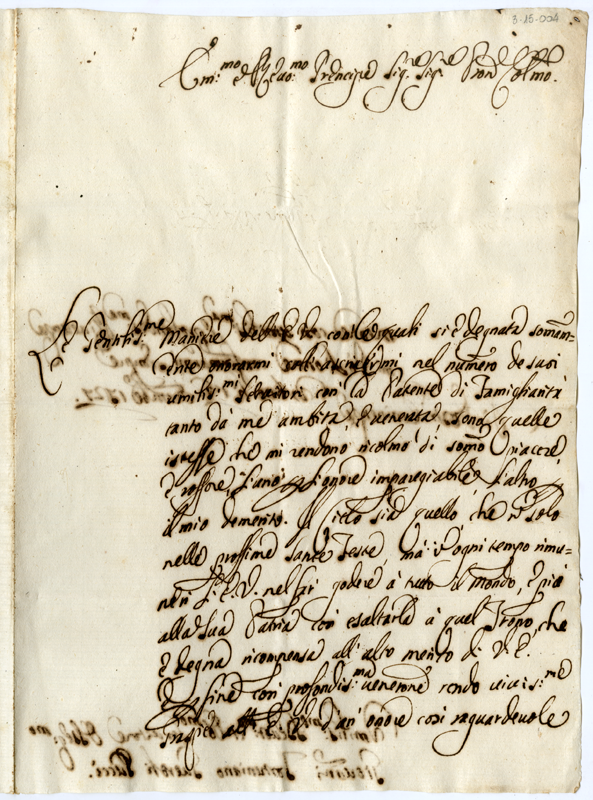 3-15-004
Em:mo e Rev:mo Prencipe Sig:re Sig:re Pron Colmo.
Le gentilis:me Maniere dell' E.V. con le quali si è degnata somam=
ente onorarmi nel numero de suoi
umilis:mi servitori con la Patente di Famigliarità
tanto da me ambita, e venerata, sono quelle
istesse che mi rendono ricolmo di somo piacere,
e rossore, l'uno Signore impareggiabile, l'altro
il mio demerito. Il Cielo sia quello, che no solo
nelle prossime Sante Feste, ma ogni tempo rimu=
neri l'E.V. nel far godere à tutto il Mondo, e più
alla sua Patria con esaltarla à quel Trono, che
è degna ricompensa all' alto merito di V.E.
E fine con profondis:ma venerone rendo vivis:me
grazie all' E.V. d'un' onore così raguardevole